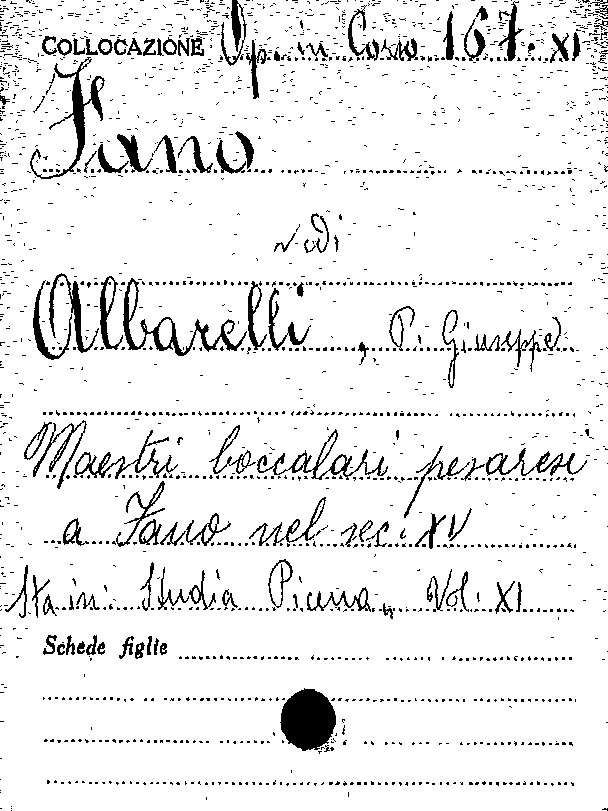 COLLOCAZIONE Op. in Corso 167. XI
Fano
vedi
Albarelli, P. Giuseppe
Maestri boccalari pesaresi
a Fano nel sec. XV
Sta in: Studia Picena, Vol. XI
Schede figlie